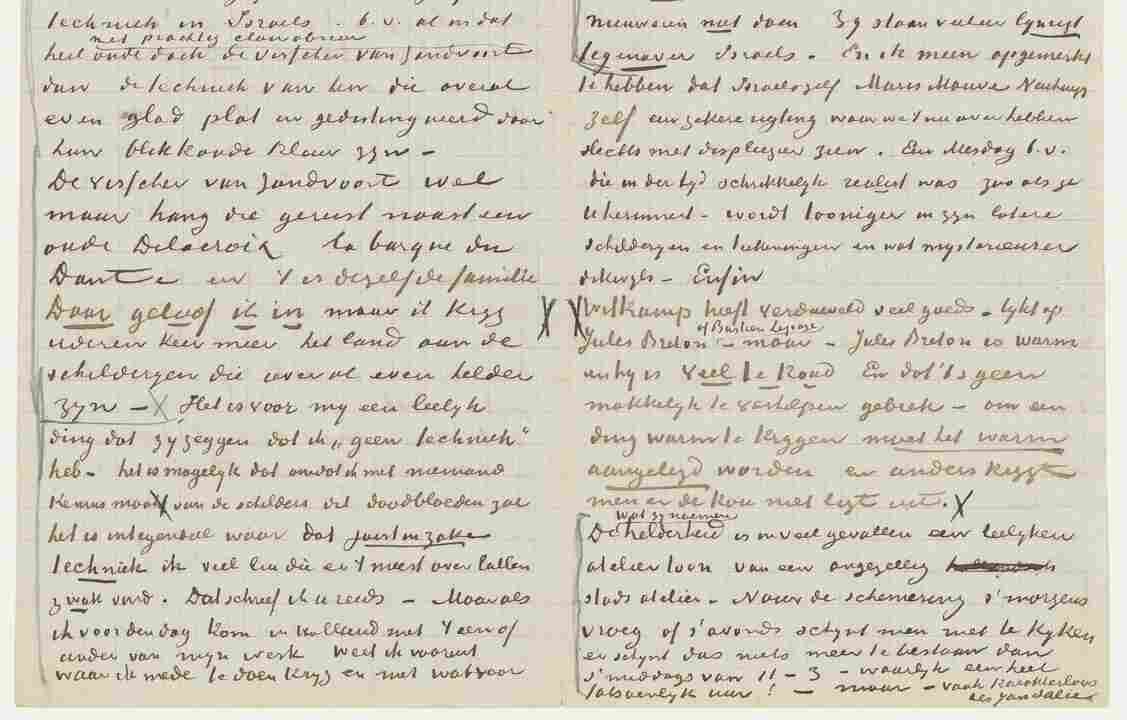 techniek in Israels. b.v. al in dat
met prachtig clair obscuur
heel oude doek de visscher van Zandvoort
dan de techniek van hen die overal
even glad plat en gedistingueerd door
hun blikkoude kleur zyn –
De visscher van Zandvoort wel
maar hang die gerust naast een
oude Delacroix la barque du
Dante en 't is dezelfde familie
Daar geloof ik in maar ik kryg
iederen keer meer het land aan de
schilderyen die overal even helder
zyn – X Het is voor my een leelyk
ding dat zy zeggen dat ik „geen techniek"
heb – het is mogelyk dat omdat ik met niemand
kennis maak X van de schilders dit doodbloeden zal
het is integendeel waar dat juist in zake
techniek ik veel lui die er 't meest over lallen
zwak vind. Dat schreef ik U reeds – Maar als
ik voor den dag kom in Holland met 't een of
ander van myn werk weet ik vooruit
waar ik mede te doen kryg en met wat voor
nieuweren niet doen zy staan veeleer lynregt
tegenover Israels. En ik meen opgemerkt
te hebben dat Israels zelf Maris Mauve Neuhuys
zelf een zekere rigting waar we 't nu over hebben
slechts met displezier zien. En Mesdag b.v.
die in der tyd schrikkelyk realist was zoo als ge
U herinnert – wordt tooniger in zyn latere
schilderyen en teekeningen en wat mysterieuser
dikwyls – Enfin
X Witkamp heeft verduiveld veel goeds – lykt op
of Bastien Lepage
Jules Breton – maar – Jules Breton is warm
en hy is veel te koud En dat 's geen
makkelyk te verhelpen gebrek – om een
ding warm te krygen moet het warm
aangelegd worden en anders krygt
men er de kou niet ligt uit. X
wat zy noemen
De helderheid is in veel gevallen een leelyken
atelier toon van een ongezellig
stads atelier – Naar de schemering s'morgens
vroeg of s'avonds schynt men niet te kyken
er schynt dus niets meer te bestaan dan
s'middags van 11 – 3 – waarlyk een heel
fatsoenlyk uur! – maar – vaak karakterloos
als Jan Salie X